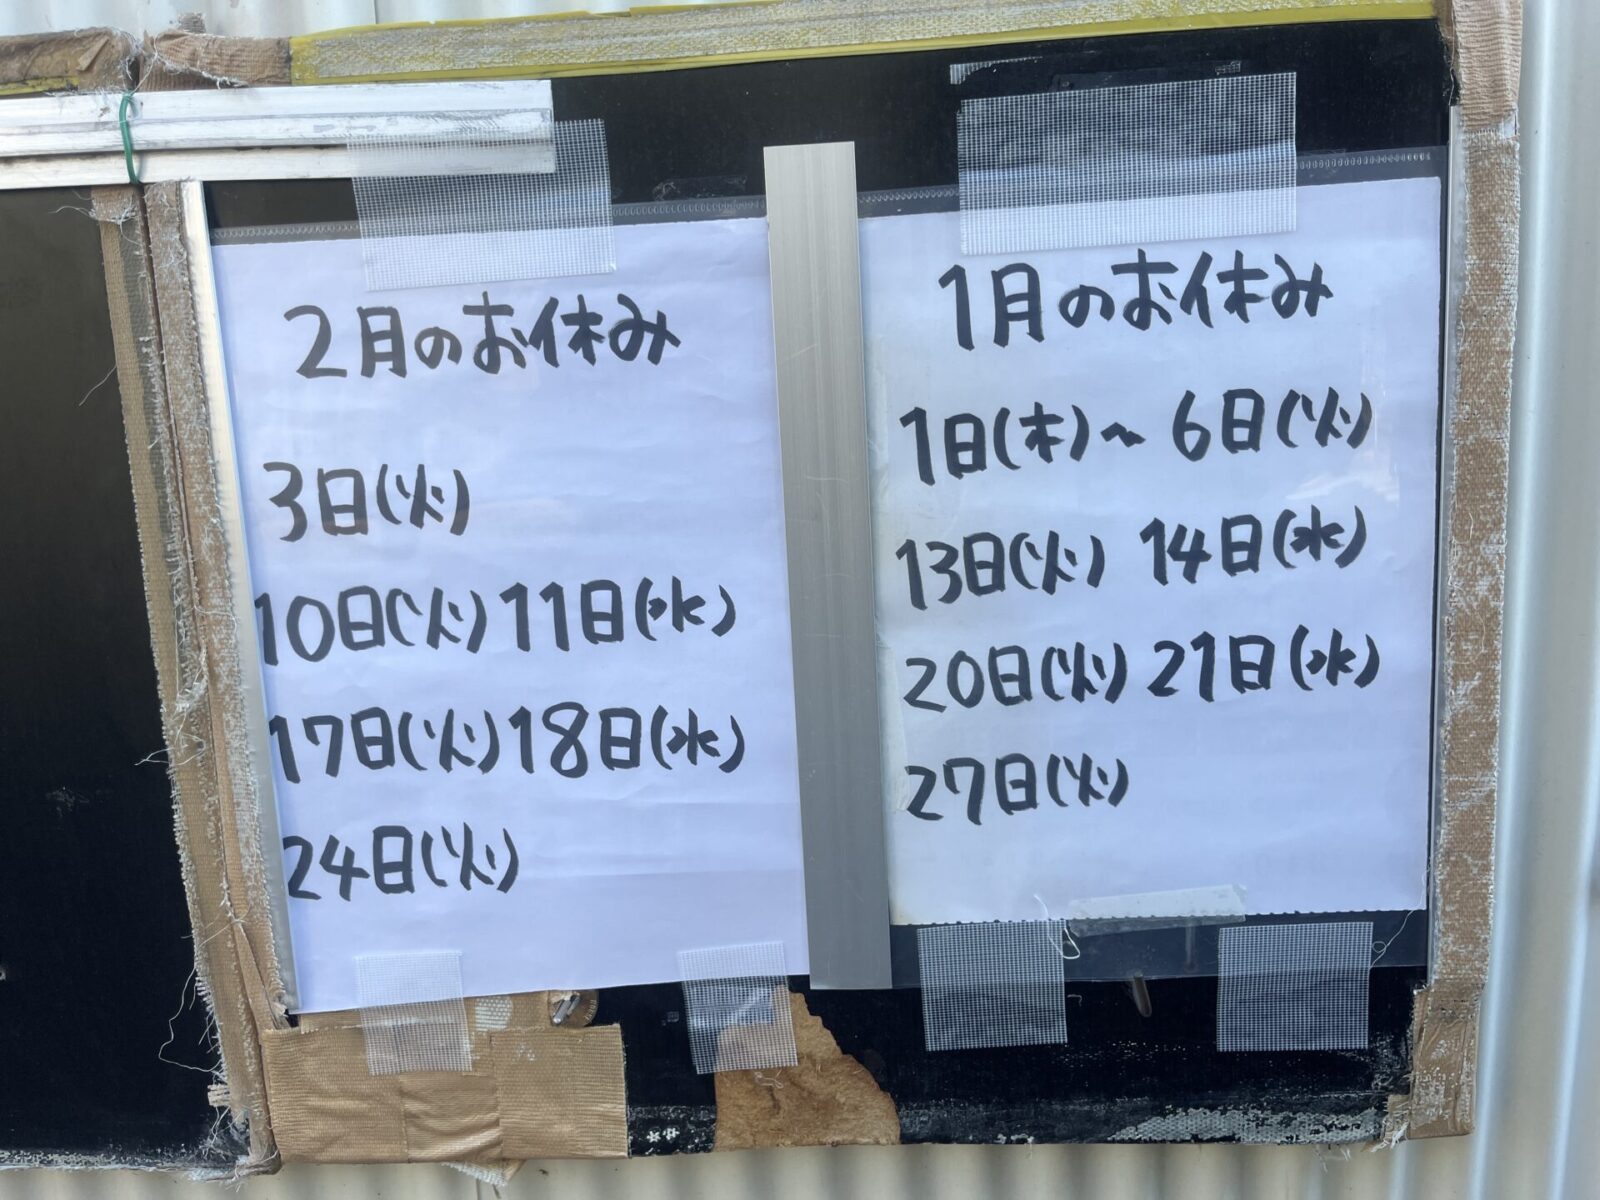 2月のお休み
3日(火)
10日(火) 11日(水)
17日(火) 18日(水)
24日(火)
1月のお休み
1日(木)〜 6日(火)
13日(火) 14日(水)
20日(火) 21日(水)
27日(火)